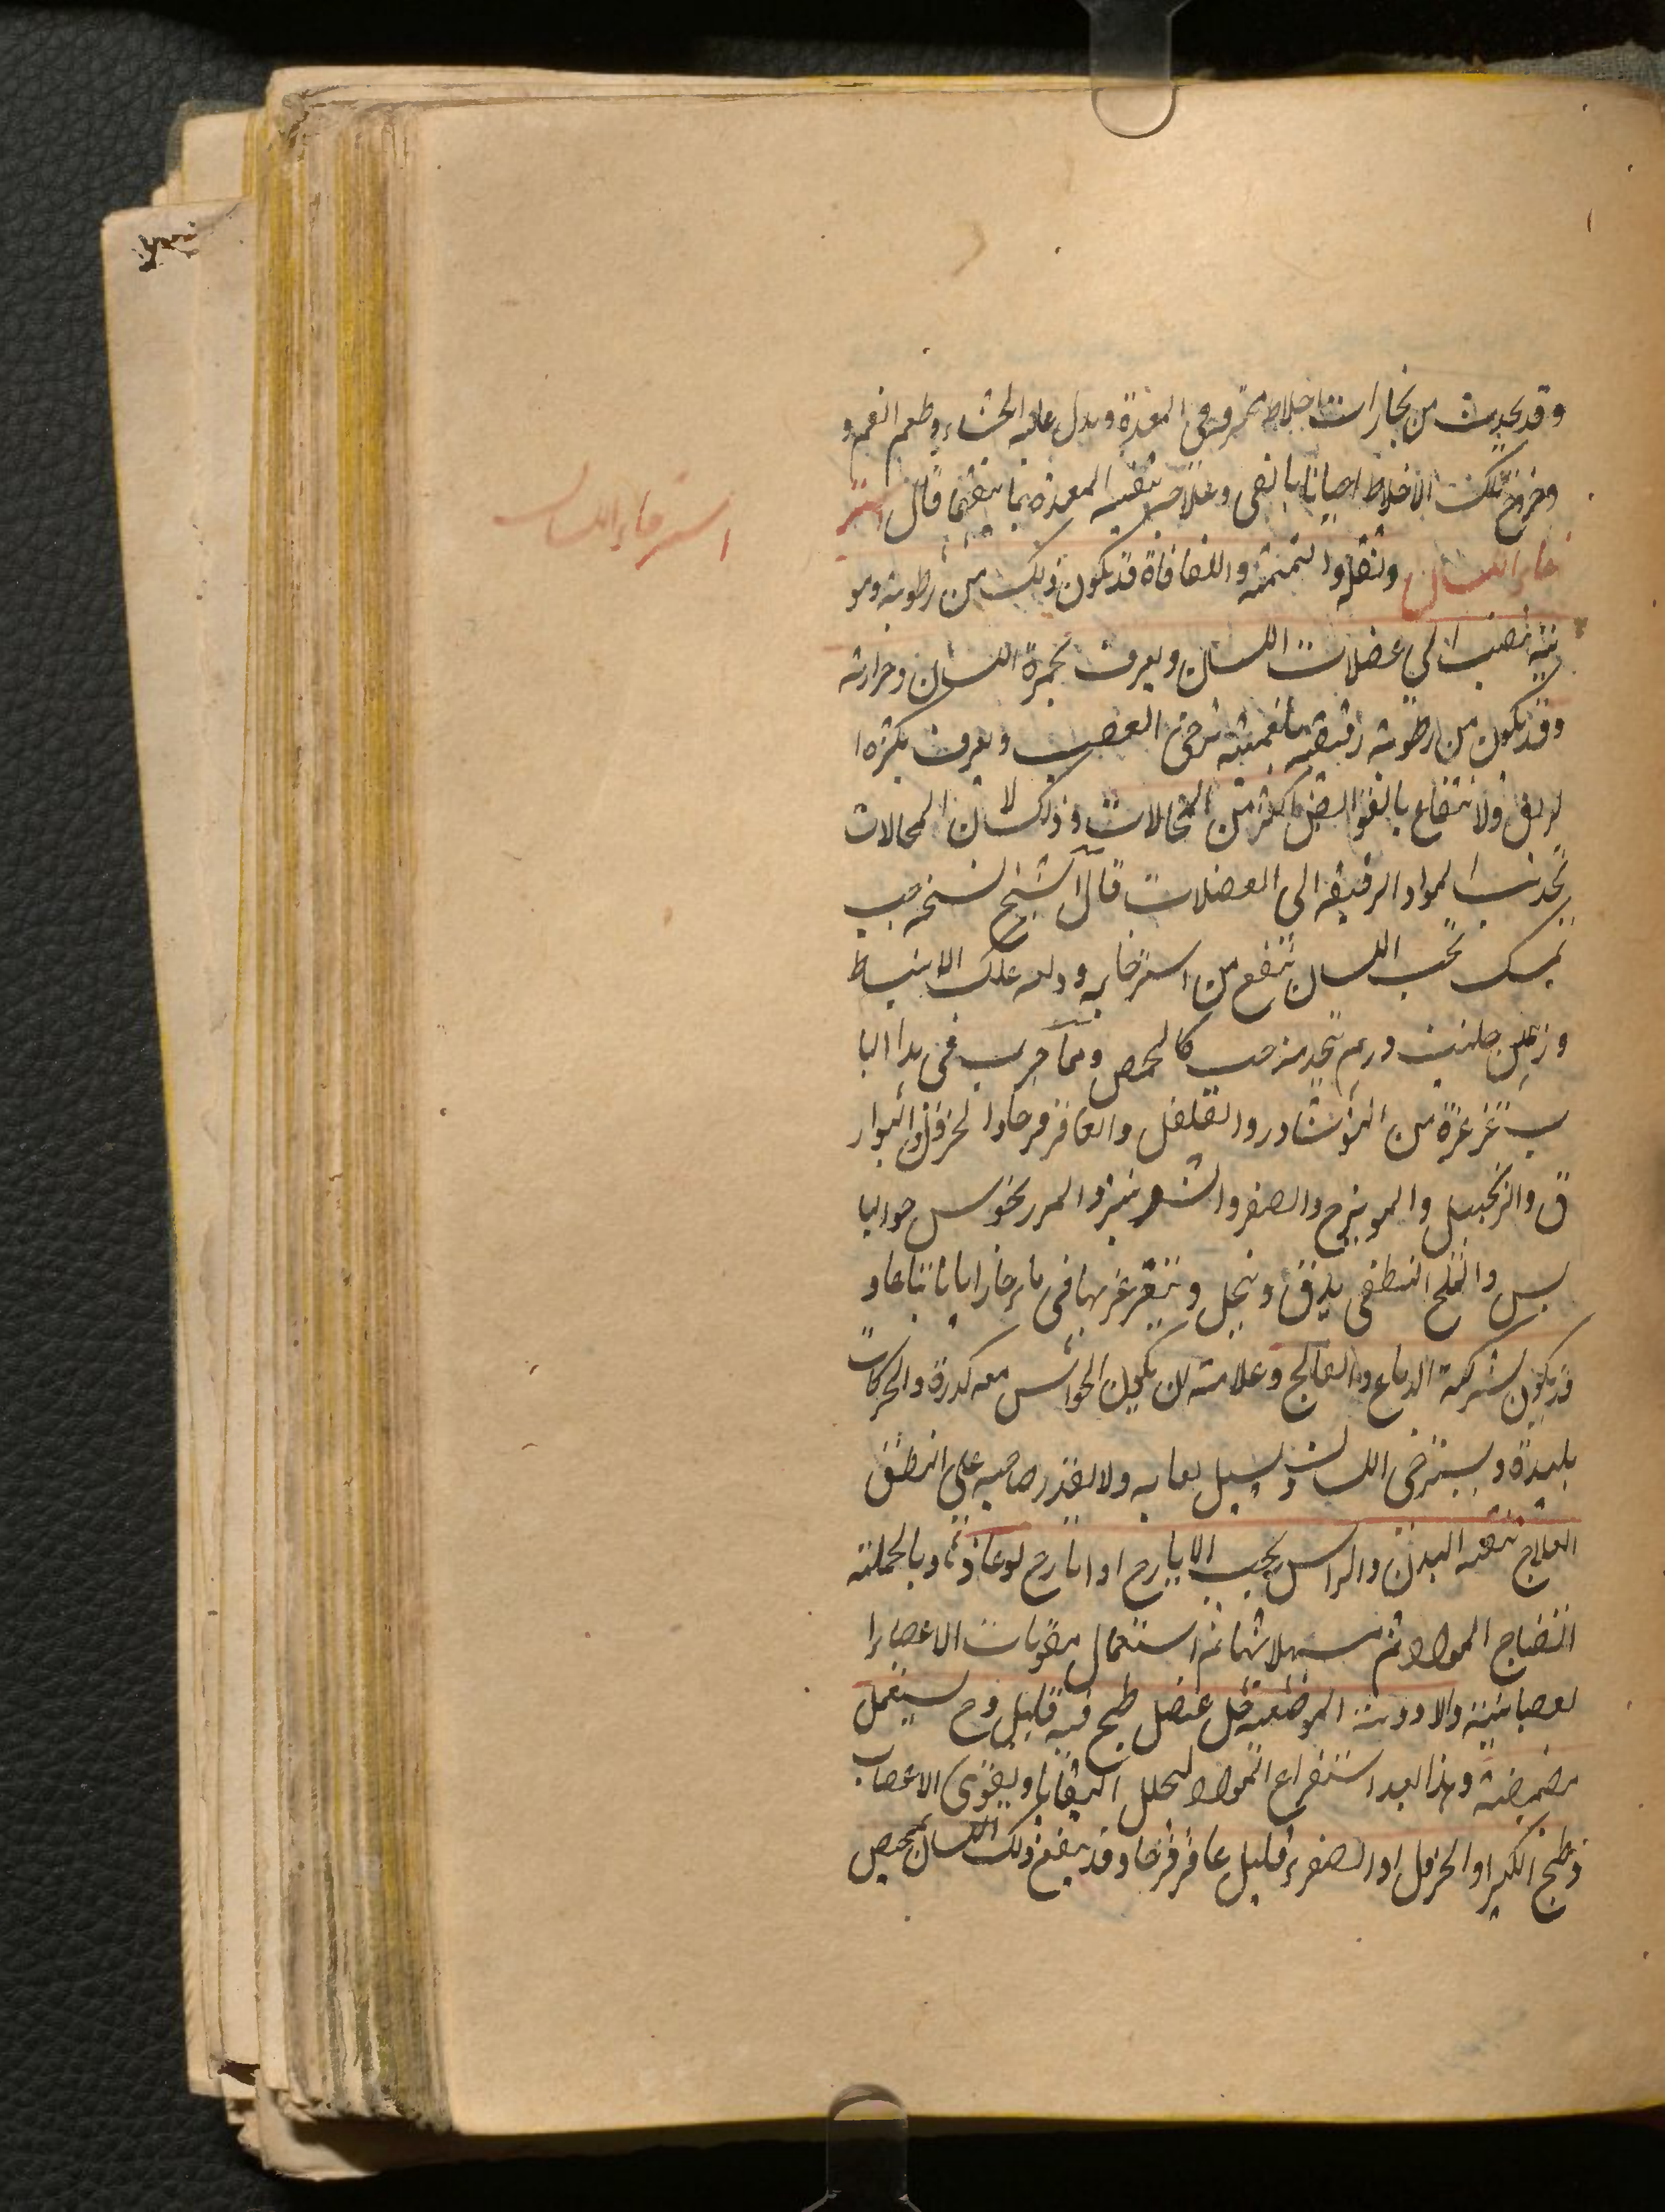 وقد يحدث من بخارات اخلاط محترقة فى المعدة ويدل عليه الجشاء وطعم الفم و
وخروج تلك الاخلاط احيانا بالقى وعلاجه تنقية المعدة بما ينقيها قال استر
خاء اللسان وثقله والتمتمة والفافاة قد يكون ذلك من رطوبة دمو
ية تنصب الى عضلات اللسان ويعرف بحمرة اللسان وحرارته
وقد يكون من رطوبة رقيقة بلغمية ترخى العصب ويعرف بكثرة ا
لريق ولانتفاع بالقوابض اكثر من المحللات وذلك لان المحللات
تجذب المواد الرقيقه الى العضلات قال الشيخ نسخه حب
يمسك تحت اللسان ينفع من استرخايه ودلعه علك الانباط
وزعمن حلتيت درهم يتخذ منه حب كالحمص ومما جرب فى هذا البا
ب غرغرة من النوشادر والفلفل والعاقرقرحا والخردل والبوار
ق والزنجبيل والمويزج والصعتر والشونيز والمرزنجوش اليا
بس والملح النفطى يدق وينخل ويتغرغر بها فى ماء حار اياما تباعا و
قد يكون لشركة الدماغ والفالج وعلامته ان يكون الحواس معه كدرة والحركات
بليدة ويسترخى اللسان ويسيل لعابه ولا يقدر صاحبه على النطق
العلاج تنقية البدن والراس بحب الايارج او ايارج لوغاذيا وبالجملة
انضاج المواد ثم مسهلاتها ثم استعمال مقويات الاعضاء ا
لعصبانية والادوية الموضعية خل عنصل طبخ فيه قليل وج يستعمل
مضمضة وهذا بعد استفراغ المواد ليحلل البقايا ويقوى الاعصاب
وطبخ الكبر او الخردل او الصعتر وقليل عاقرقرحا وقد ينفع ذلك اللسان بمخيض
استرخاء اللسان